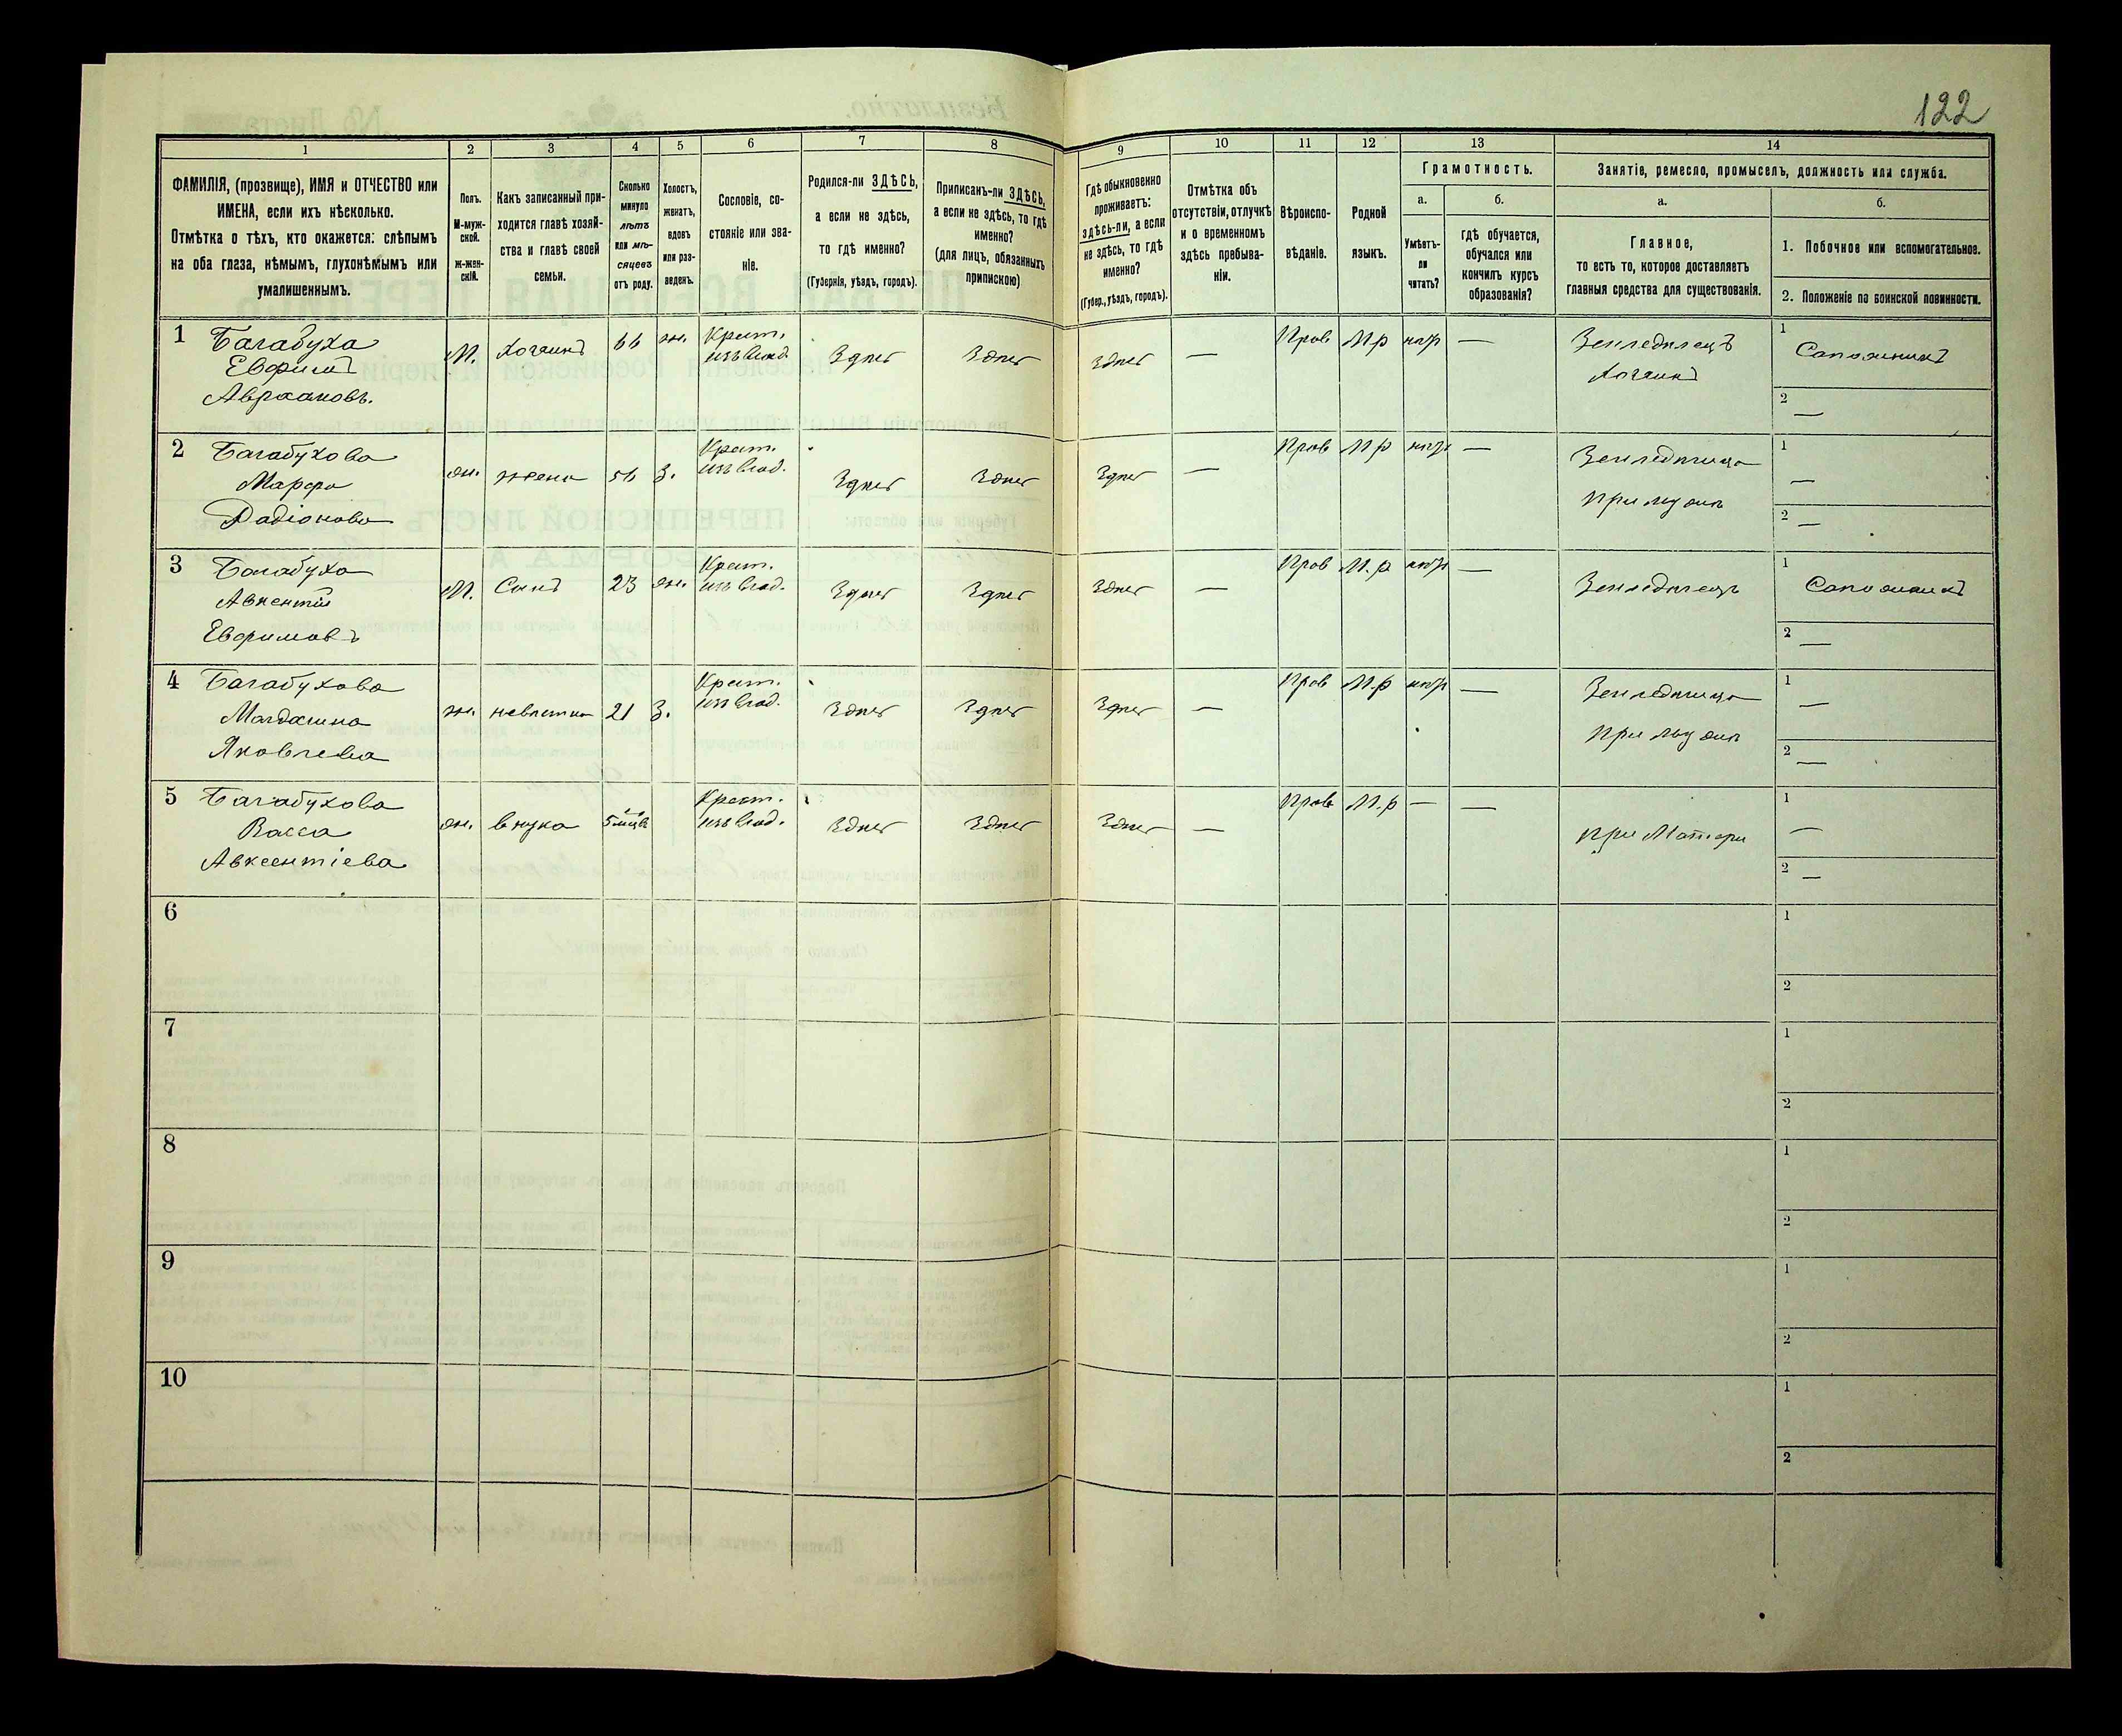 122
1 2 3 4 5 6 7 8 9 10 11 12 13 14
ФАМИЛІЯ, (прозвище), ИМЯ и ОТЧЕСТВО или
ИМЕНА, если ихъ нѣсколько.
Отмѣтка о тѣхъ, кто окажется: слѣпымъ
на оба глаза, нѣмымъ, глухонѣмымъ или
умалишеннымъ.
Полъ.
М-муж-
ской.
ж-жен-
скій.
Какъ записанный при-
ходится главѣ хозяй-
ства и главѣ своей
семьи.
Сколько
минуло
лѣтъ
или мѣ-
сяцевъ
отъ роду.
Холостъ,
женатъ,
вдовъ
или раз-
веденъ.
Сословіе, со-
стояніе или зва-
ніе.
Родился-ли ЗДѢСЬ,
а если не здѣсь,
то гдѣ именно?
(Губернія, уѣздъ, городъ).
Приписанъ-ли ЗДѢСЬ,
а если не здѣсь, то гдѣ
именно?
(для лицъ, обязанныхъ
припискою)
Гдѣ обыкновенно
проживаетъ:
здѣсь-ли, а если
не здѣсь, то гдѣ
именно?
(Губер., уѣздъ, городъ).
Отмѣтка объ
отсутствіи, отлучкѣ
и о временномъ
здѣсь пребыва-
ніи.
Вѣроиспо-
вѣданіе.
Родной
языкъ.
Грамотность.
а.
Умѣетъ-
ли
читать?
б.
гдѣ обучается,
обучался или
кончилъ курсъ
образованія?
Занятіе, ремесло, промыселъ, должность или служба.
а.
Главное,
то есть то, которое доставляетъ
главныя средства для существованія.
б.
1. Побочное или вспомогательное.
2. Положеніе по воинской повинности.
1 Багабуха
Евфимъ
Аврамовъ.
М. Хозяинъ 66 ж. Крест.
изъ влад.
Здѣсь Здѣсь Здѣсь — Пров М р нѣтъ
Земледѣлецъ
Хозяинъ
1 Сапожникъ
2 —
2 Багабухова
Марфа
Радіонова
ж. жена 56 З. Крест.
изъ влад.
Здѣсь Здѣсь Здѣсь — Пров М р нѣтъ —
при мужѣ
1 —
2 —
3 Багабуха
Авкентій
Евфимовъ
М. Сынъ 23 ж. Крест.
изъ влад.
Здѣсь Здѣсь Здѣсь — Пров М. р нѣтъ —
Земледѣлецъ
1 Сапожникъ
2 —
4 Багабухова
Магдалина
Яковлева
ж. невѣстка 21 З. Крест.
изъ влад.
Здѣсь Здѣсь Здѣсь — Пров М.р нѣтъ —
при мужѣ
1 —
2 —
5 Багабухова
Васса
Авксентіева
ж. внука 5 мцъ Крест.
изъ влад.
Здѣсь Здѣсь Здѣсь — Пров М.р — —
при Матери
1 —
2 —
6 1
2
7 1
2
8 1
2
9 1
2
10 1
2